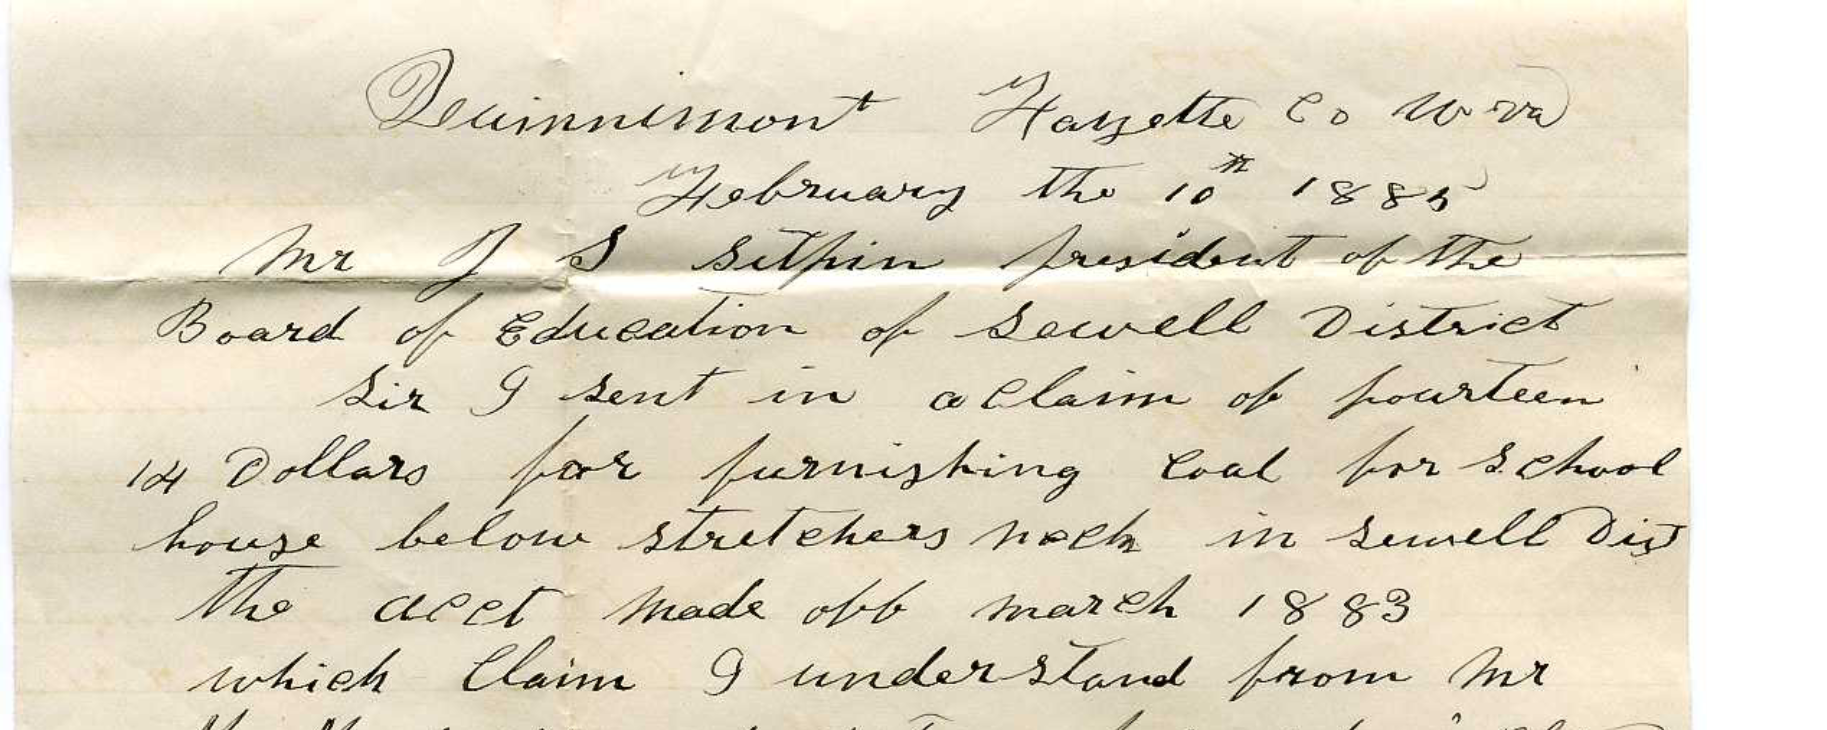 Quinnimont Fayette Co W va
February the 10th 1885
Mr J S Sutphin president of the
Board of Education of Sewell District
Sir I sent in a Claim of fourteen
14 Dollars for furnishing Coal for School
house below stretchers neck in Sewell Dist
the acct made off march 1883
which Claim I understand from Mr